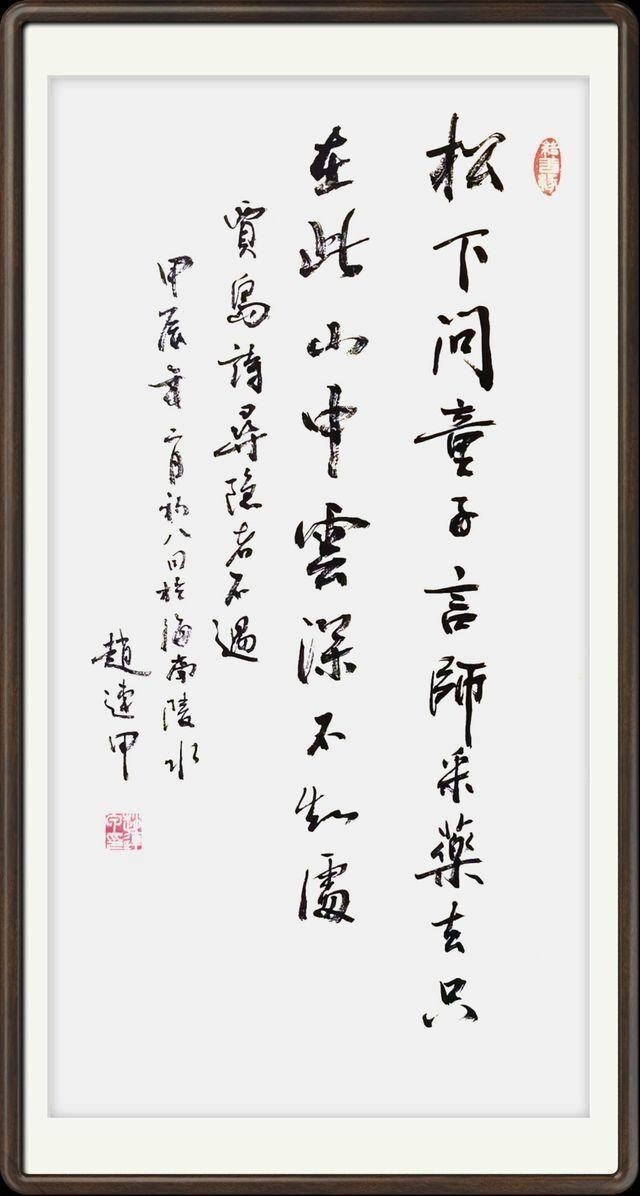 松下问童子言師采藥去只
在此山中雲深不知處
賈島詩尋隐者不遇
甲辰年二月初八日於海南陵水
趙連甲